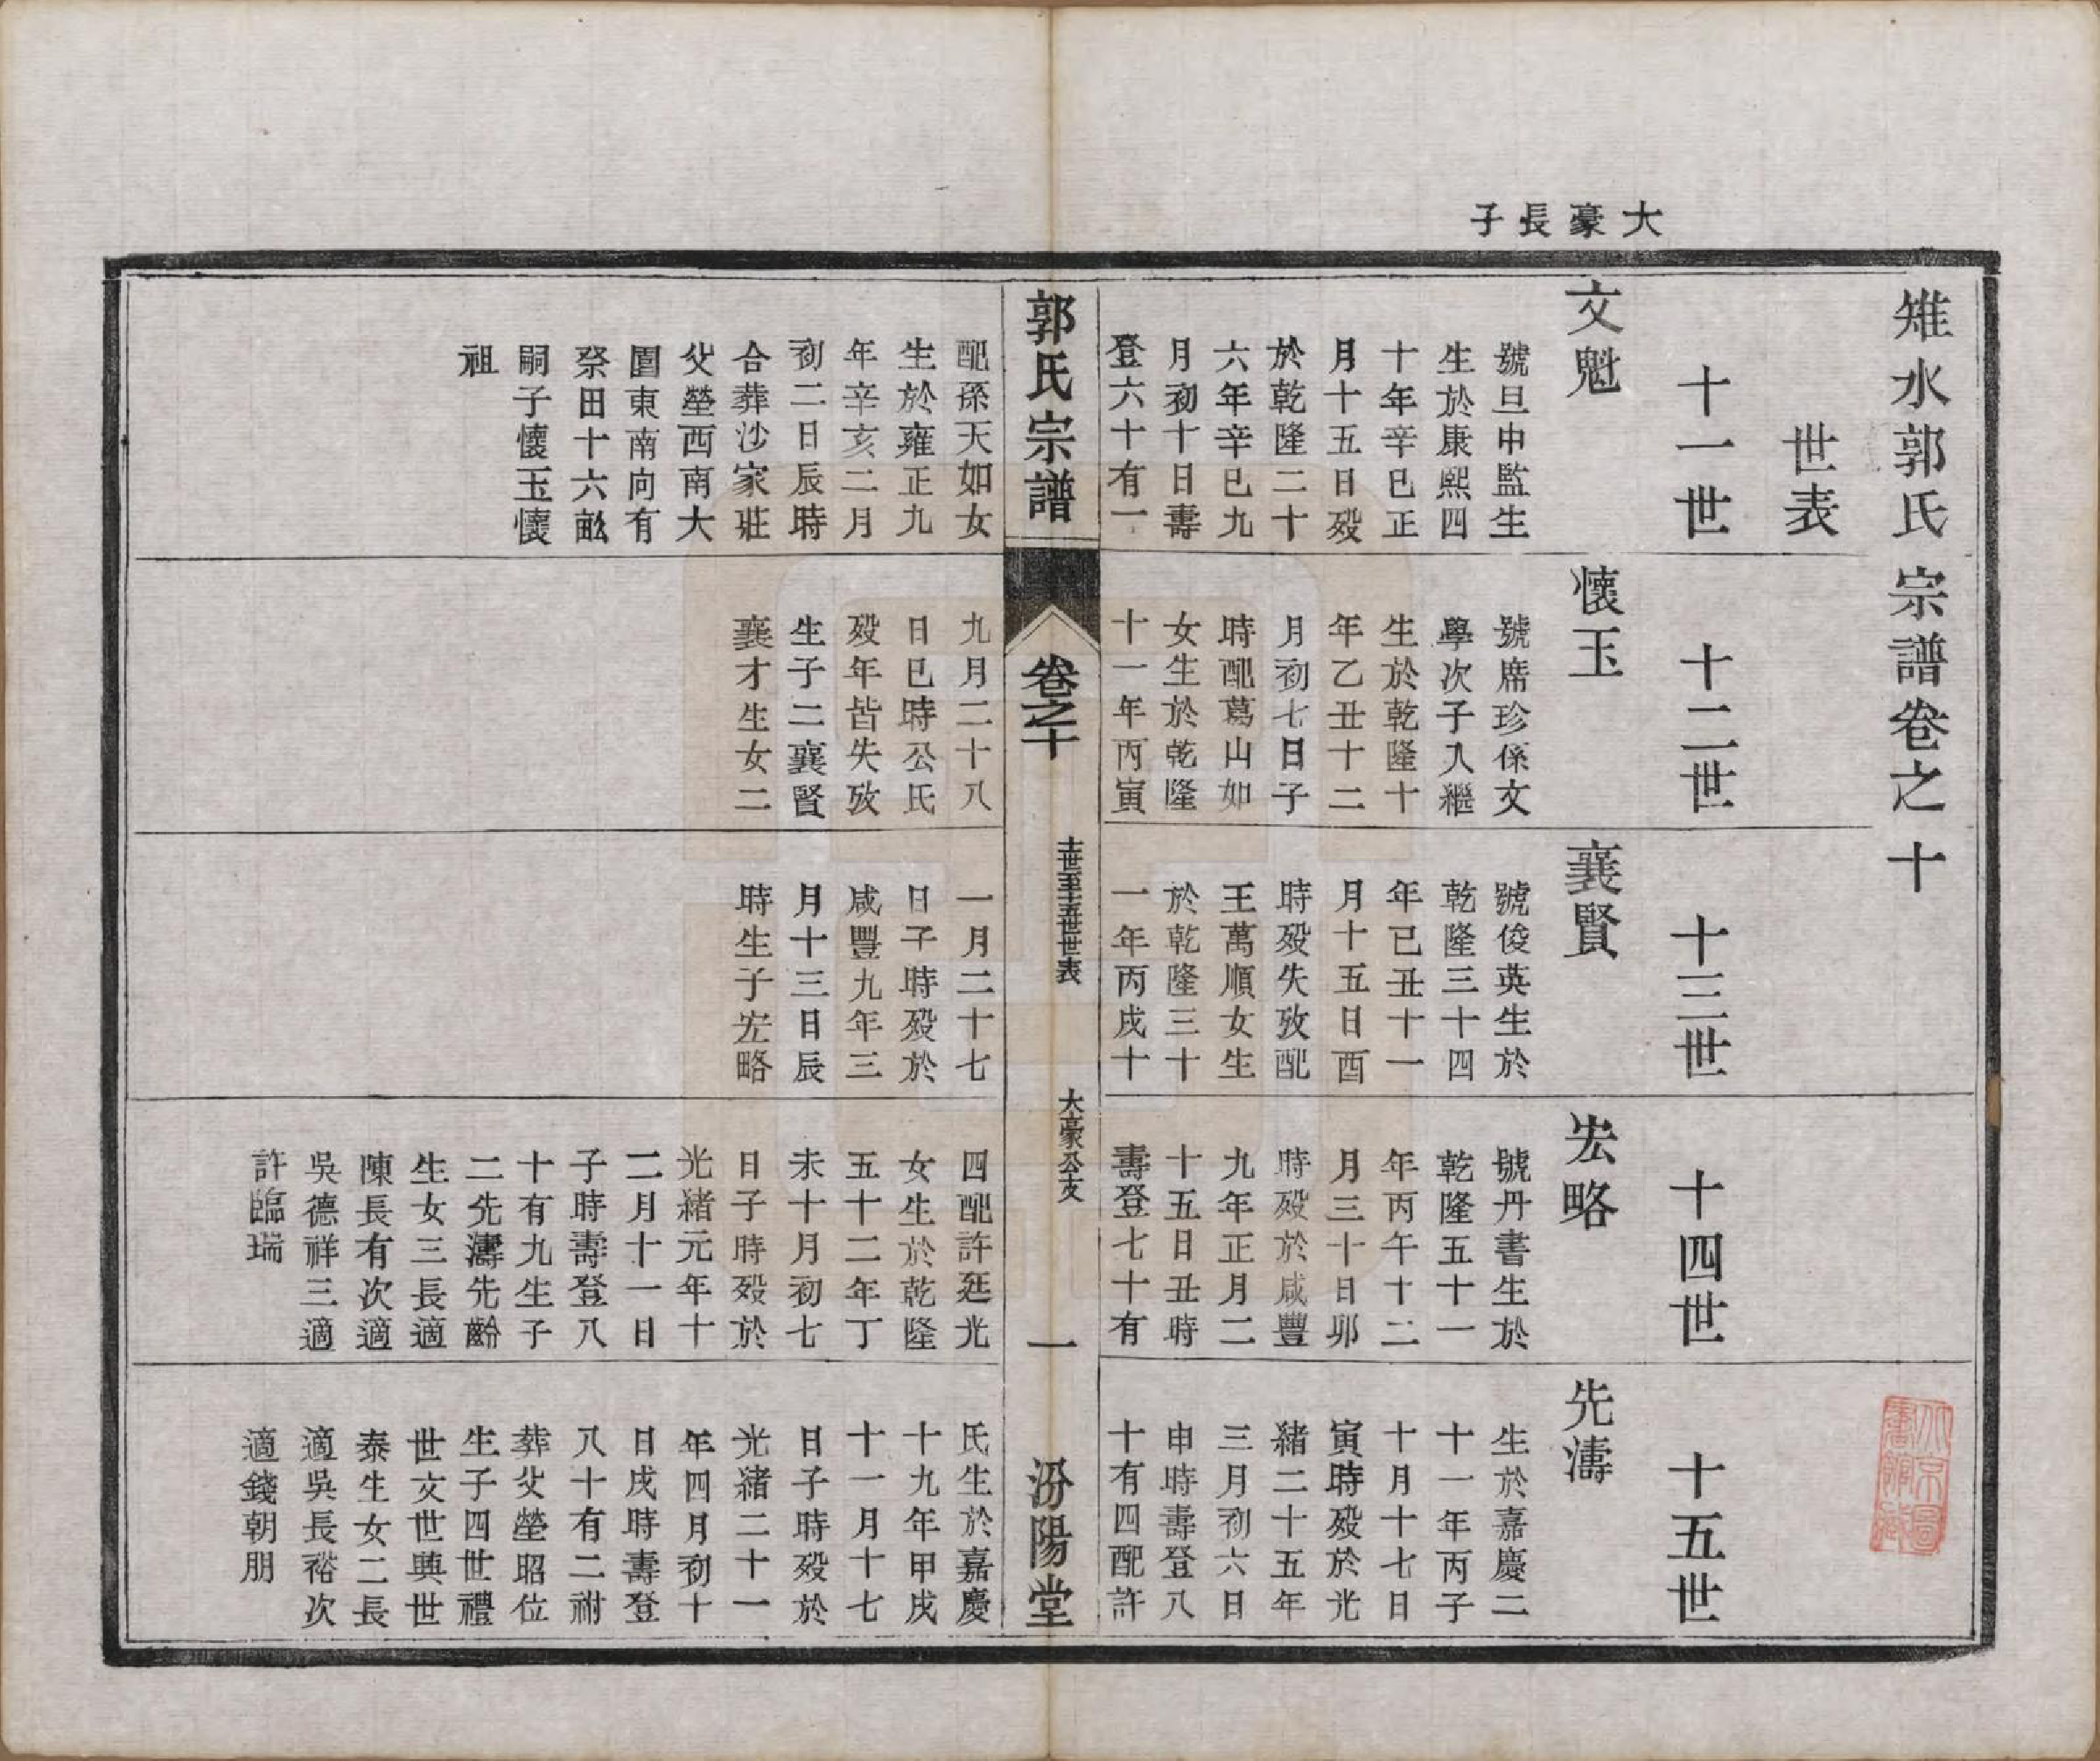 雉水郭氏宗譜卷之十
世表
十一世
十二世
十三世
十四世
十五世
大豪長子
文魁
號旦申監生
生於康熙四
十年辛巳正
月十五日歿
於乾隆二十
六年辛巳九
月初十日壽
登六十有一
配孫天如女
生於雍正九
年辛亥二月
初二日辰時
合葬沙家莊
父塋西南大
圍東南向有
祭田十六畝
嗣子懷玉懷
祖
懷玉
號席珍係文
學次子入繼
生於乾隆十
年乙丑十二
月初七日子
時配葛山如
女生於乾隆
十一年丙寅
九月二十八
日巳時公氏
歿年皆失攷
生子二襄賢
襄才生女二
襄賢
號俊英生於
乾隆三十四
年己丑十一
月十五日酉
時歿失攷配
王萬順女生
於乾隆三十
一年丙戌十
一月二十七
日子時歿於
咸豐九年三
月十三日辰
時生子宏略
宏略
號丹書生於
乾隆五十一
年丙午十二
月三十日卯
時歿於咸豐
九年正月二
十五日丑時
壽登七十有
四配許廷光
女生於乾隆
五十二年丁
未十月初七
日子時歿於
光緒元年十
二月十一日
子時壽登八
十有九生子
二先濤先齡
生女三長適
陳長有次適
吳德祥三適
許臨瑞
先濤
生於嘉慶二
十一年丙子
十月十七日
寅時歿於光
緒二十五年
三月初六日
申時壽登八
十有四配許
氏生於嘉慶
十九年甲戌
十一月十七
日子時歿於
光緒二十一
年四月初十
日戌時壽登
八十有二祔
葬父塋昭位
生子四世禮
世文世興世
泰生女二長
適吳長裕次
適錢朝朋
郭氏宗譜
卷之十
十一世至十五世世表
大豪公支
一
汾陽堂